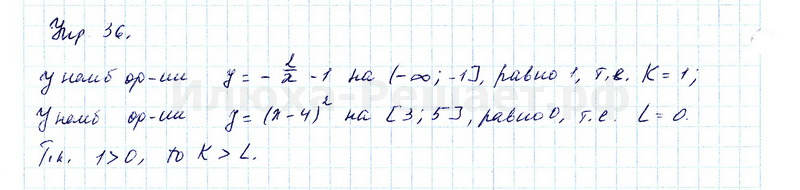 Упр 36.
Унаиб ф-ии y = - 2/x - 1 на (-∞; -1], равно 1, т.е. K = 1;
Унаиб ф-ии y = (x - 4)² на [3; 5], равно 0, т.е. L = 0.
Т.к. 1 > 0, то K > L.
Илюха-Решает.рф